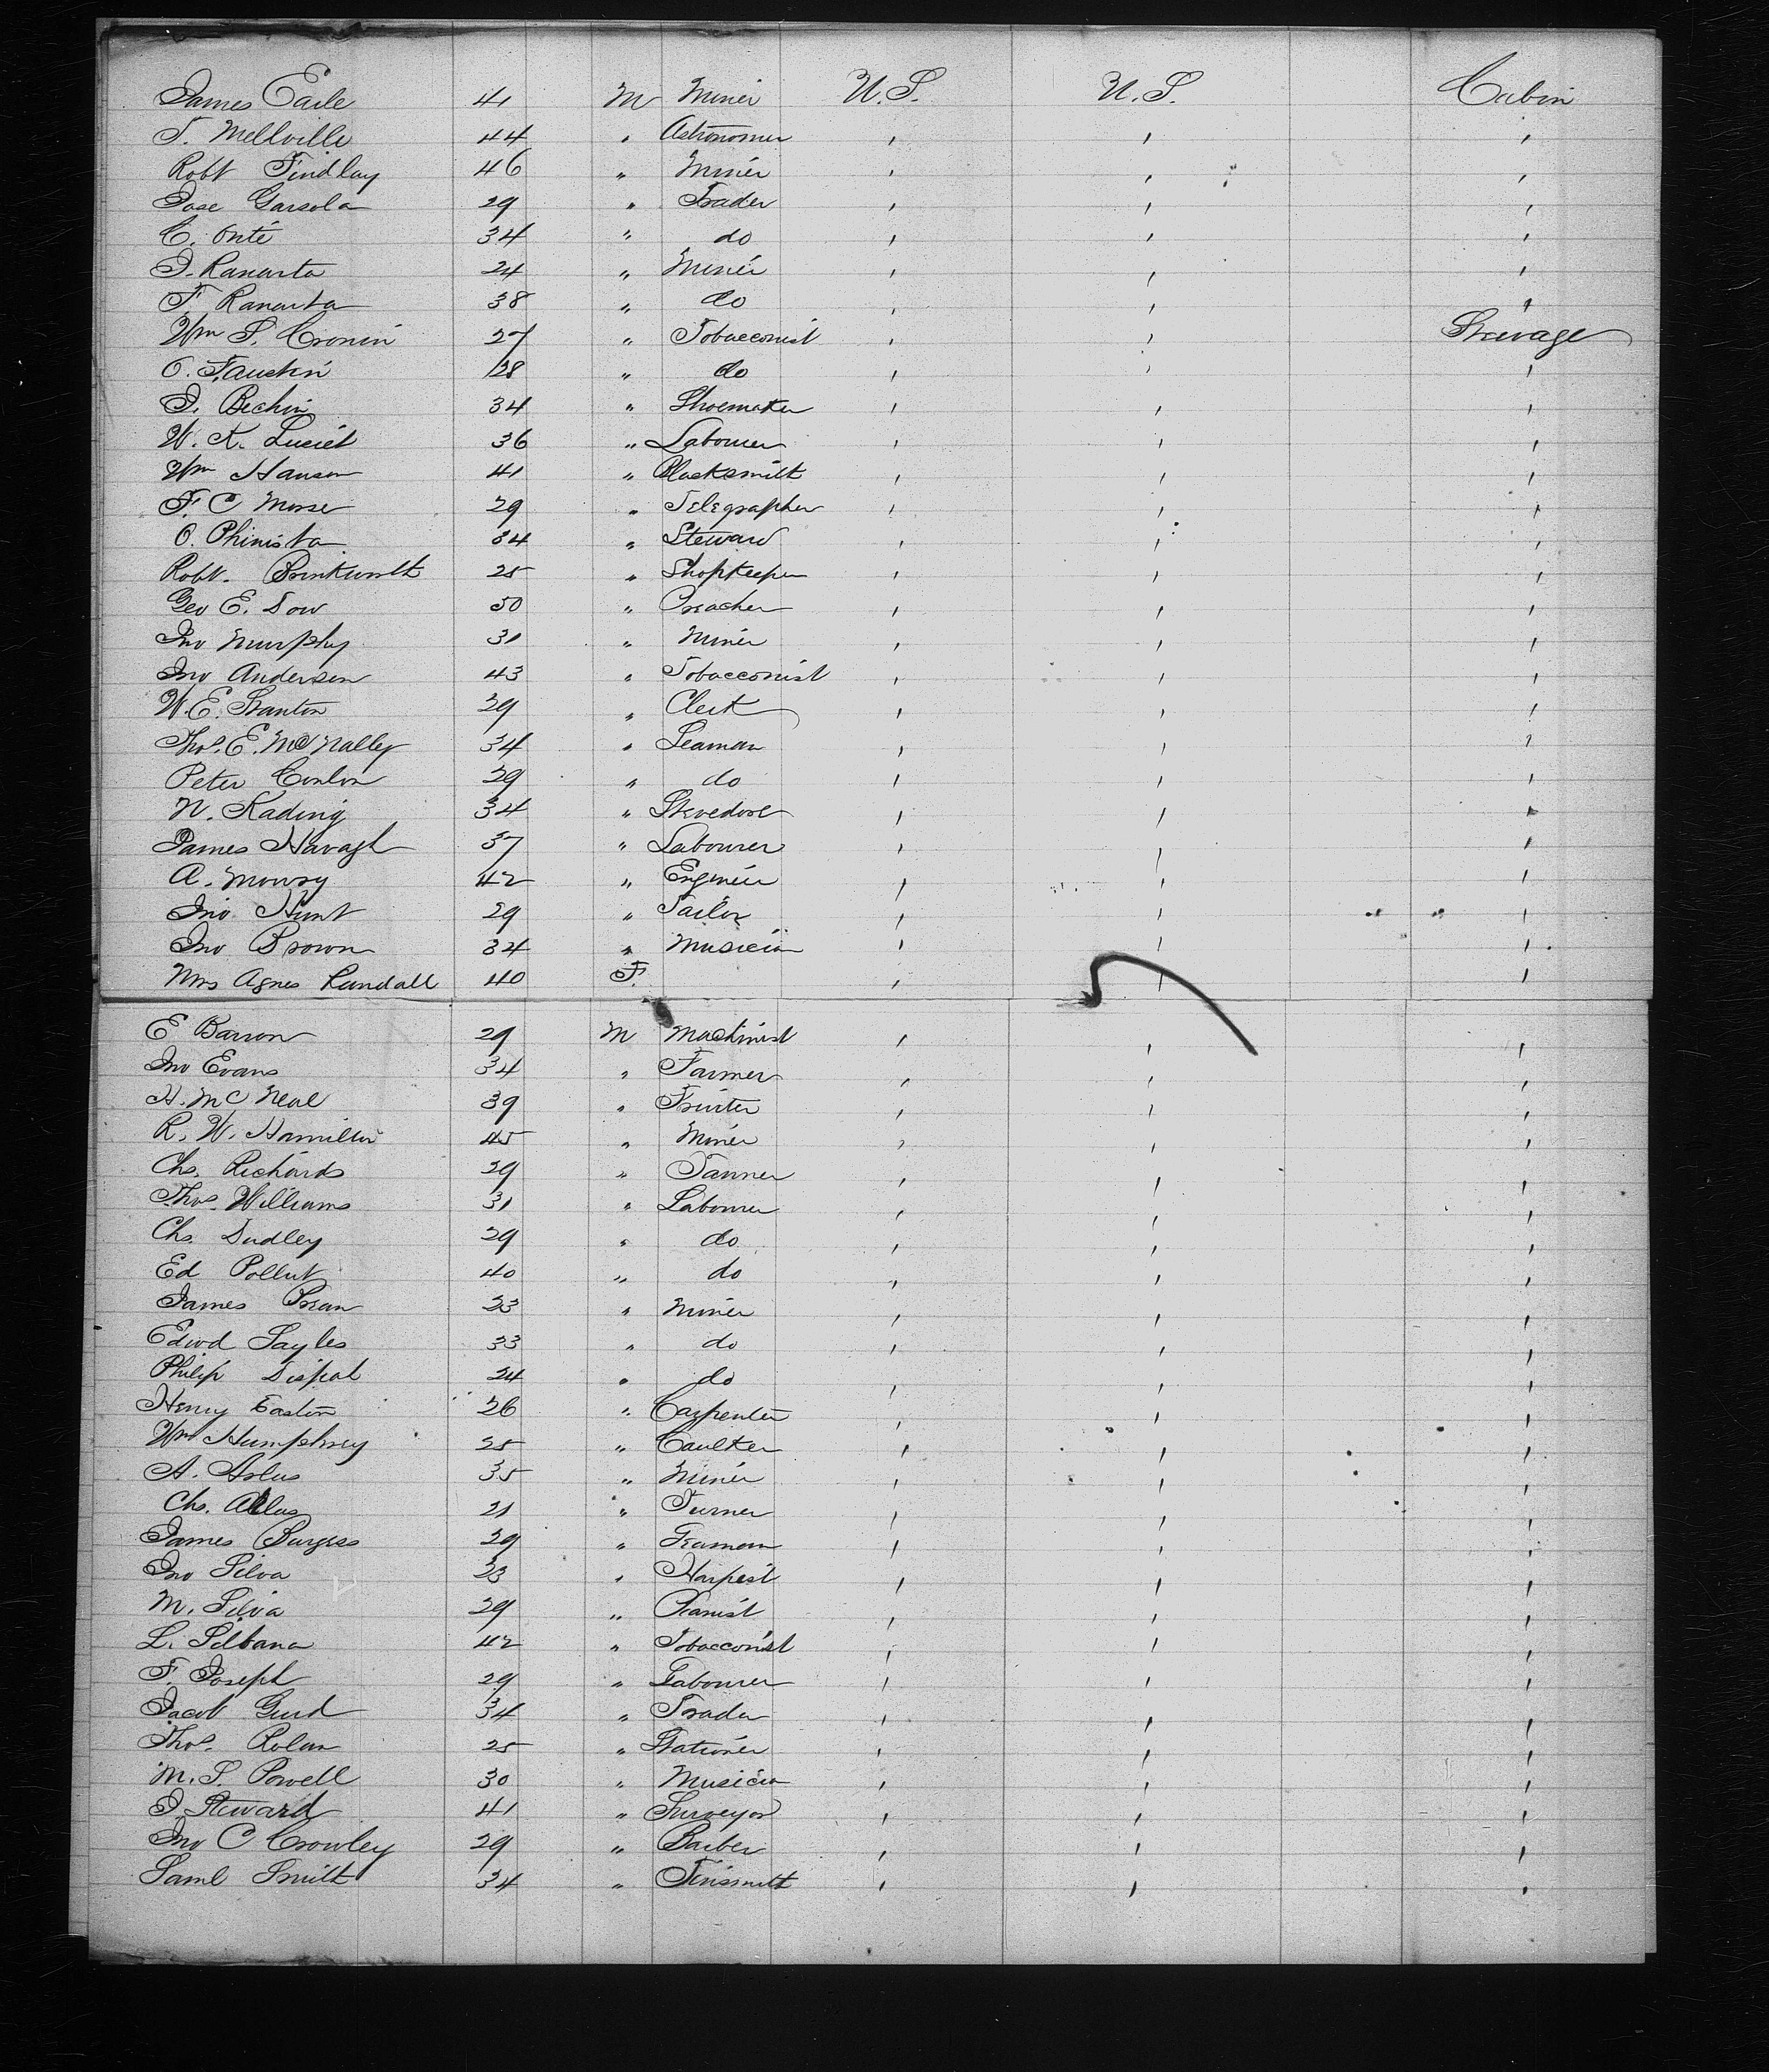 James Earle 41 M Miner U.S. U.S. Cabin
T. Mellville 44 " Astronomer ' ' '
Robt Findlay 46 " Miner ' ' '
Jose Garsola 29 " Trader ' ' '
C. Onte 34 " do ' ' '
J. Ranarta 24 " Miner ' ' '
F. Ranarta 38 " do ' ' '
Wm S. Cronin 27 " Tobacconist ' ' Steerage
O. Fauckin 28 " do ' ' '
J. Bechin 34 " Shoemaker ' ' '
W. K. 36 " Labourer ' ' '
Wm Hansen 41 " Blacksmith ' ' '
F. C Morse 29 " Telegrapher ' ' '
O. Phinista 34 " Steward ' ' '
Robt. Brinkworth 25 " Shopkeeper ' ' '
Geo E. Dow 50 " Preacher ' ' '
Jno Murphy 31 " Miner ' ' '
Jno Andersen 43 " Tobacconist ' ' '
W. E. Stanton 29 " Clerk ' ' '
Thos. E. McNalley 34 " Seaman ' ' '
Peter Conlon 29 " do ' ' '
N. Kading 34 " Stevedore ' ' '
James Havagh 37 " Labourer ' ' '
A. Mowry 42 " Engineer ' ' '
Jno. Hunt 29 " Tailor ' ' '
Jno Brown 34 " Musician ' ' '
Mrs Agnes Randall 40 F. ' ' '
E Barron 29 M Machinist ' ' '
Jno Evans 34 " Farmer ' ' '
H. McNeal 39 " ' ' '
R. W. Hamilton 45 " Miner ' ' '
Chs. Richards 29 " Tanner ' ' '
Thos. Williams 31 " Labourer ' ' '
Chs. Dudley 29 " do ' ' '
Ed Pollut 40 " do ' ' '
James 23 " Miner ' ' '
Edwd Sayles 33 " do ' ' '
Philip 24 " do ' ' '
Henry Easton 26 " Carpenter ' ' '
Wm Humphrey 25 " Caulker ' ' '
A. 35 " Miner ' ' '
Chs. 21 " Turner ' ' '
James Burgess 29 " Seaman ' ' '
Jno Silva 23 " Harpist ' ' '
M. Silva 29 " Pianist ' ' '
L. 42 " Tobacconist ' ' '
F. Joseph 29 " Labourer ' ' '
Jacob Gurd 34 " Trader ' ' '
Thos. Rolan 25 " Stationer ' ' '
M. S. Powell 30 " Musician ' ' '
J Steward 41 " Surveyor ' ' '
Jno C Crowley 29 " Barber ' ' '
Saml Smith 34 " Tinsmith ' ' '